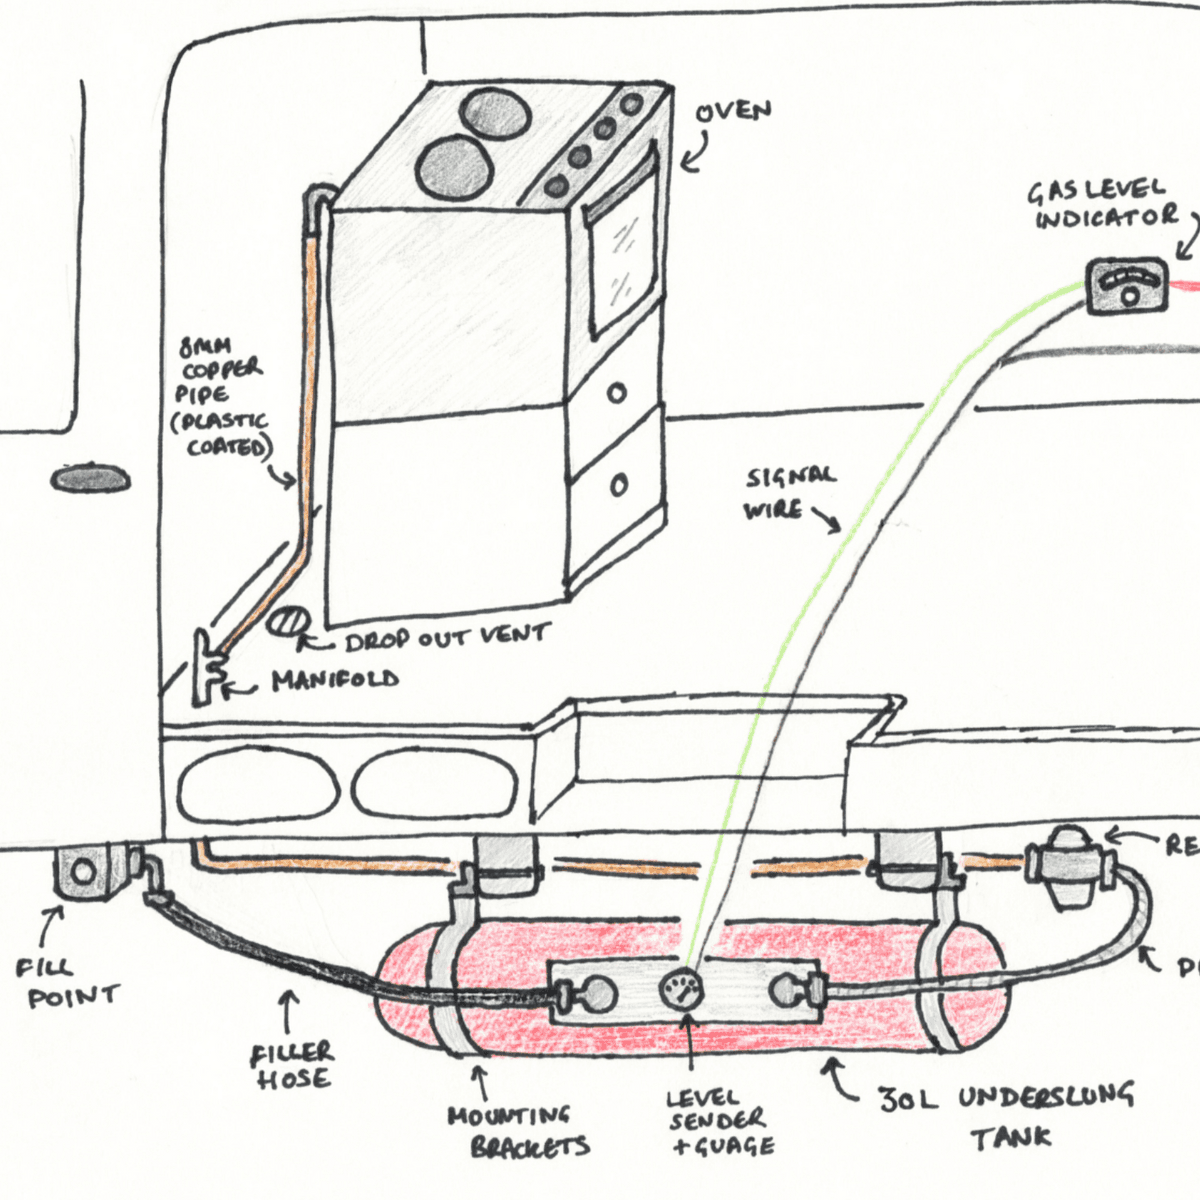 OVEN
GAS LEVEL
INDICATOR
8MM
COPPER
PIPE
(PLASTIC
COATED)
SIGNAL
WIRE
DROP OUT VENT
MANIFOLD
RE
FILL
POINT
FILLER
HOSE
MOUNTING
BRACKETS
LEVEL
SENDER
+ GUAGE
30L UNDERSLUNG
TANK